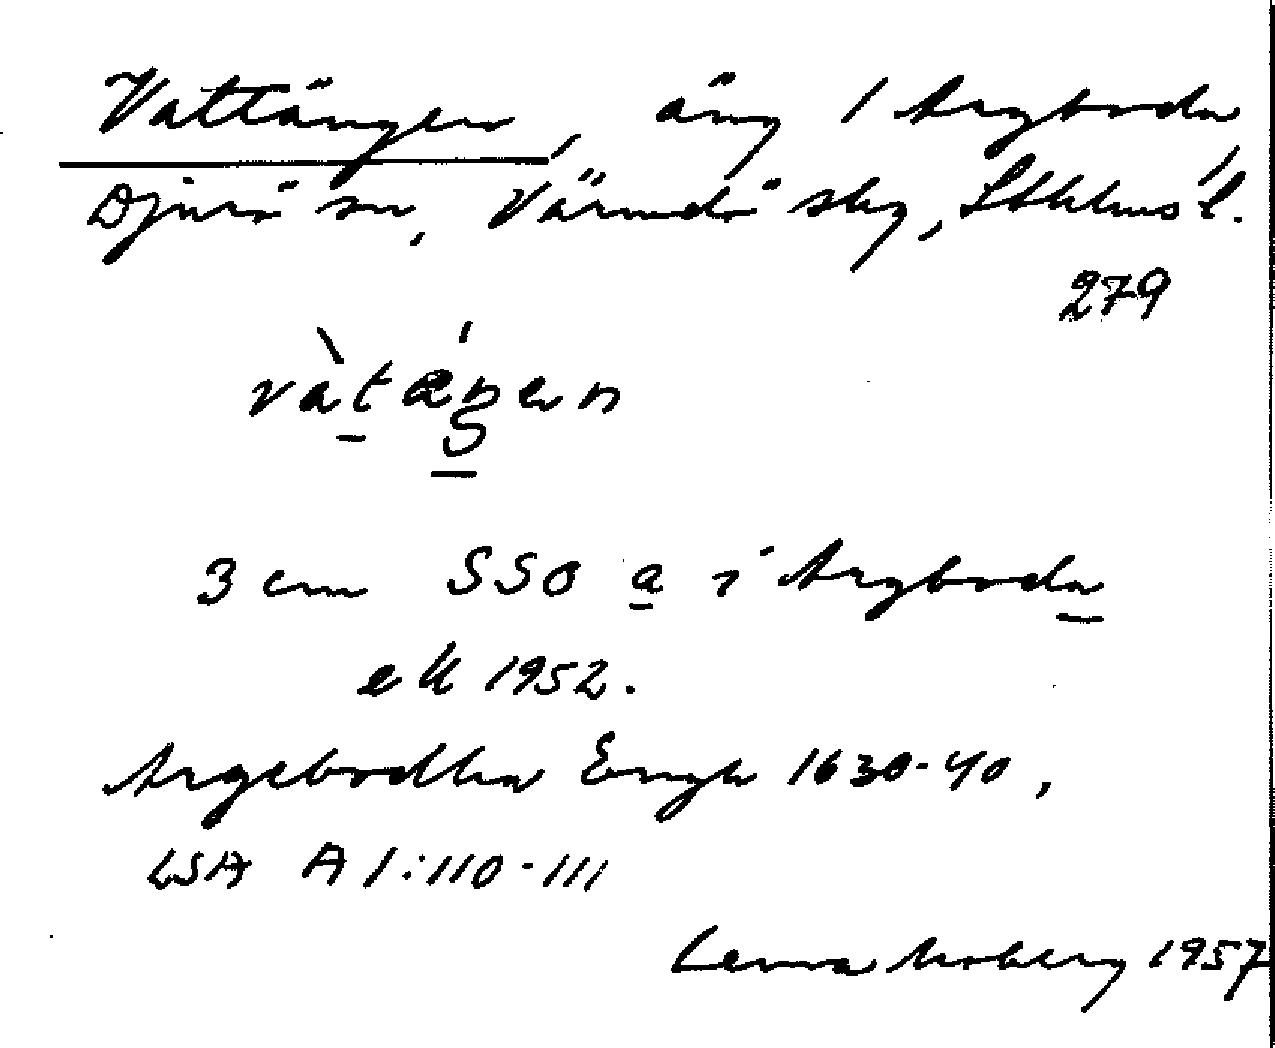 Vattängen, äng / Argboda,
Djurö sn, Värmdö skg, Sthlms l.
279
vàtæŋen
3 cm SSO a i Argboda
ek 1952.
Argebodha Engh 1630-40,
LSA A 1:110-111
Lenna Moberg 1957